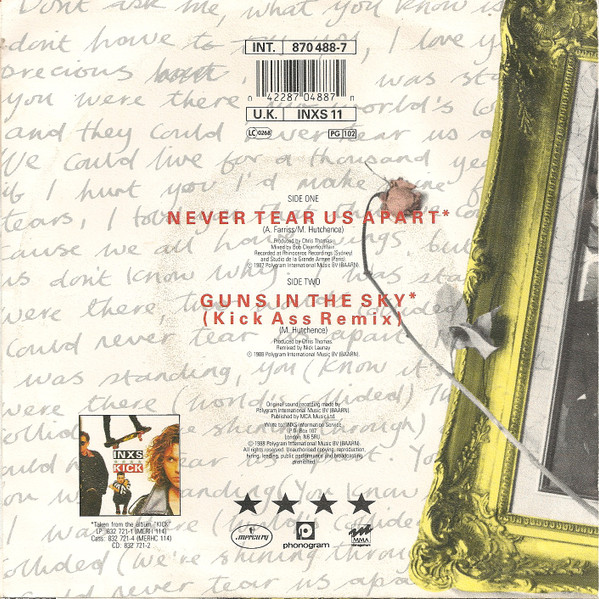 Dont ask me, what you know is
dont have to
I love y
precious
was sta
you were there
world's
and they could never tear us a
We could live for a thousand yea
if I hurt you I'd make
tears, I
we all
wings but
us don't know why
was
were there, two
could never tear us apart
was standing, you (know it's
were there (world's collided)
(we're shining through)
never tear us
standing (You know
I was there (world's collided
collided (we're shining through
never tear us apa
INT. 870 488-7
0 42287 04887 n
U.K. INXS 11
LC 0268 PG 102
SIDE ONE
NEVER TEAR US APART*
(A. Farriss/M. Hutchence)
Produced by Chris Thomas
Mixed by Bob Clearmountain
Recorded at Rhinoceros Recordings (Sydney)
and Studio de la Grande Armee (Paris)
℗ 1987 Polygram International Music BV (BAARN)
SIDE TWO
GUNS IN THE SKY*
(Kick Ass Remix)
(M. Hutchence)
Produced by Chris Thomas
Remixed by Nick Launay
℗ 1988 Polygram International Music BV (BAARN)
Original sound recording made by
Polygram International Music BV (BAARN)
Published by MCA Music Ltd
Write to: INXS Information Service
P.O. Box 107
London, N6 5RU
© 1988 Polygram International Music BV (BAARN)
All rights reserved. Unauthorised copying, reproduction,
hiring, lending, public performance and broadcasting
prohibited.
INXS
KICK
*Taken from the album 'KICK'
LP: 832 721-1 (MERH 114)
Cass: 832 721-4 (MERHC 114)
CD: 832 721-2
mercury
phonogram
MMA